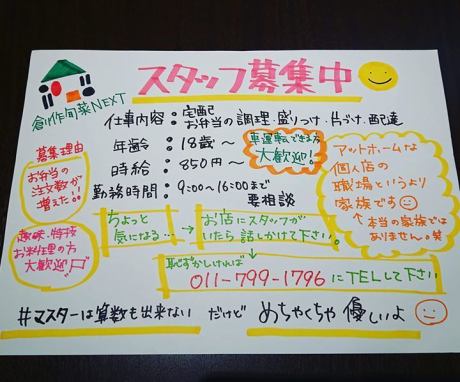 スタッフ募集中
創作旬菜NEXT
仕事内容：宅配
お弁当の調理・盛りつけ・片づけ・配達
年齢：18歳～
車運転できる方
大歓迎！
時給：850円～
勤務時間：9:00～16:00まで
要相談
募集理由
お弁当の
注文数が
増えた!!
趣味・特技
お料理の方
大歓迎
アットホームな
個人店の
職場というより
家族です
↑本当の家族では
ありません。笑
ちょっと
気になる…
→
お店にスタッフが
いたら話しかけて下さい。
恥ずかしければ
011-799-1796にTELして下さい
#マスターは算数も出来ないだけどめちゃくちゃ優しいよ